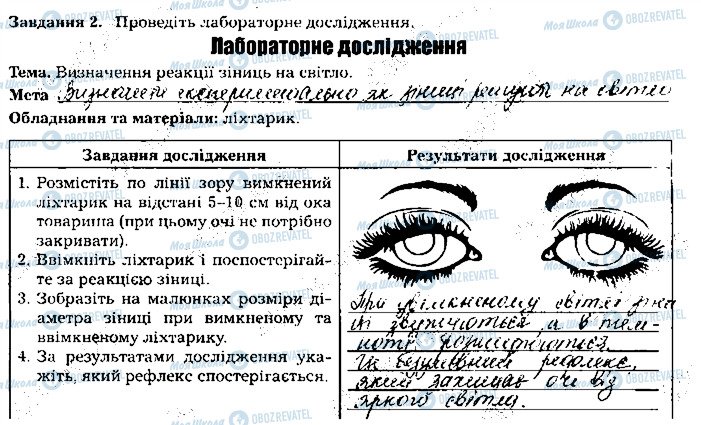 Завдання 2. Проведіть лабораторне дослідження.
Лабораторне дослідження
Тема. Визначення реакції зіниць на світло.
Мета Визначити експериментально як зіниці реагують на світло
Обладнання та матеріали: ліхтарик.
Завдання дослідження
1. Розмістіть по лінії зору вимкнений
ліхтарик на відстані 5–10 см від ока
товариша (при цьому очі не потрібно
закривати).
2. Ввімкніть ліхтарик і поспостерігай-
те за реакцією зіниці.
3. Зобразіть на малюнках розміри ді-
аметра зіниці при вимкненому та
ввімкненому ліхтарику.
4. За результатами дослідження ука-
жіть, який рефлекс спостерігається.
Результати дослідження
При увімкненому світлі
звужуються а в тем-
ноті розширюються.
Це безумовний рефлекс,
який захищає очі від
яркого світла.
Моя Школа OBOZREVATEL